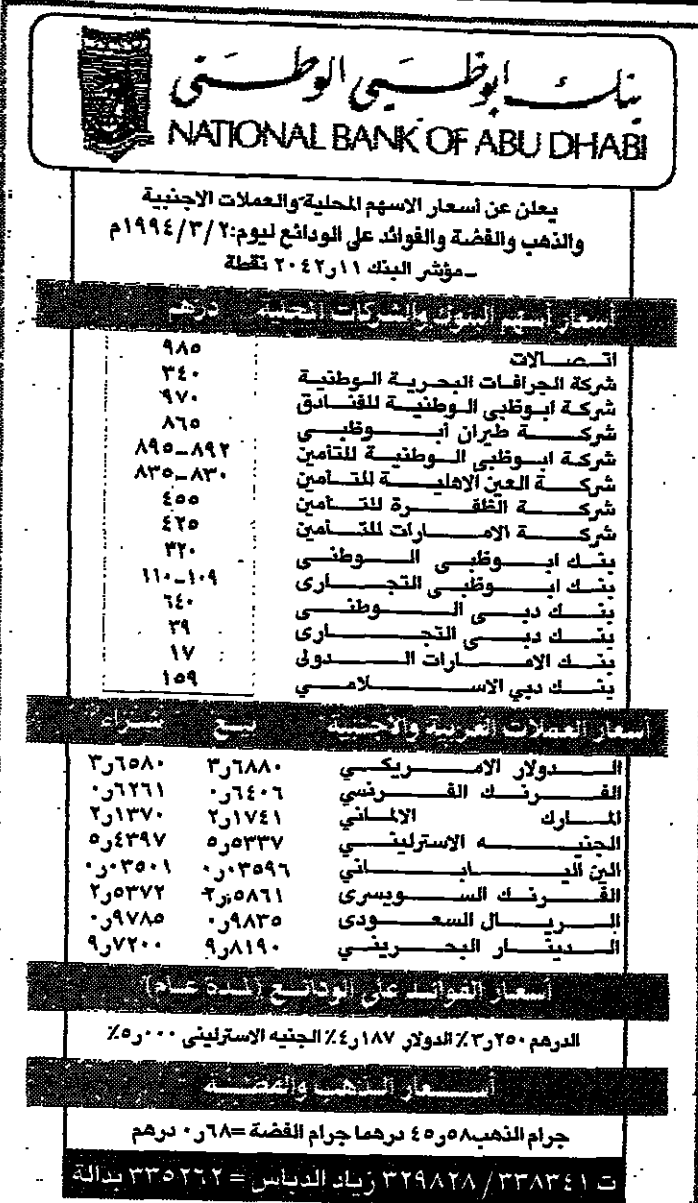 بنك ابوظبي الوطني
NATIONAL BANK OF ABU DHABI
يعلن عن أسعار الاسهم المحلية والعملات الاجنبية
والذهب والفضة والفوائد على الودائع ليوم: ١٩٩٤/٣/٢م
ـ مؤشر البنك ٢٠٤٢٫١١ نقطة
أسعار أسهم البنوك والشركات المحلية درهم
اتصالات ٩٨٥
شركة الجرافات البحرية الوطنية ٣٤٠
شركة ابوظبى الوطنية للفنادق ٩٧٠
شركة طيران أبوظبي ٨٦٥
شركة ابوظبى الوطنية للتأمين ٨٩٢ـ٨٩٥
شركة العين الاهلية للتأمين ٨٣٠ـ٨٣٥
شركة الظفرة للتأمين ٤٥٥
شركة الامارات للتأمين ٤٢٥
بنك ابوظبي الوطنى ٣٢٠
بنك ابوظبى التجارى ١٠٩ـ١١٠
بنك دبى الوطنى ٦٤٠
بنك دبى التجارى ٣٩
بنك الامارات الدولى ١٧
بنك دبي الاسلامي ١٥٩
أسعار العملات العربية والاجنبية بيع شراء
الدولار الامريكي ٣٫٦٨٨٠ ٣٫٦٥٨٠
الفرنك الفرنسي ٠٫٦٤٠٦ ٠٫٦٢٦١
المارك الالماني ٢٫١٧٤١ ٢٫١٣٧٠
الجنيه الاسترليني ٥٫٥٣٣٧ ٥٫٤٣٩٧
الين اليابانى ٠٫٠٣٥٩٦ ٠٫٠٣٥٠١
الفرنك السويسرى ٢٫٥٨٦١ ٢٫٥٣٧٢
الريال السعودى ٠٫٩٨٣٥ ٠٫٩٧٨٥
الدينار البحريني ٩٫٨١٩٠ ٩٫٧٢٠٠
أسعار الفوائد على الودائع (لمدة عام)
الدرهم ٣٫٢٥٠٪ الدولار ٤٫١٨٧٪ الجنيه الاسترلينى ٥٫٠٠٠٪
أسعار الذهب والفضة
جرام الذهب ٤٥٫٥٨ درهما جرام الفضة = ٠٫٦٨ درهم
ت ٣٣٨٣٤١ / ٣٢٩٨٢٨ زياد الدباس = ٣٣٥٢٦٢ بدالة